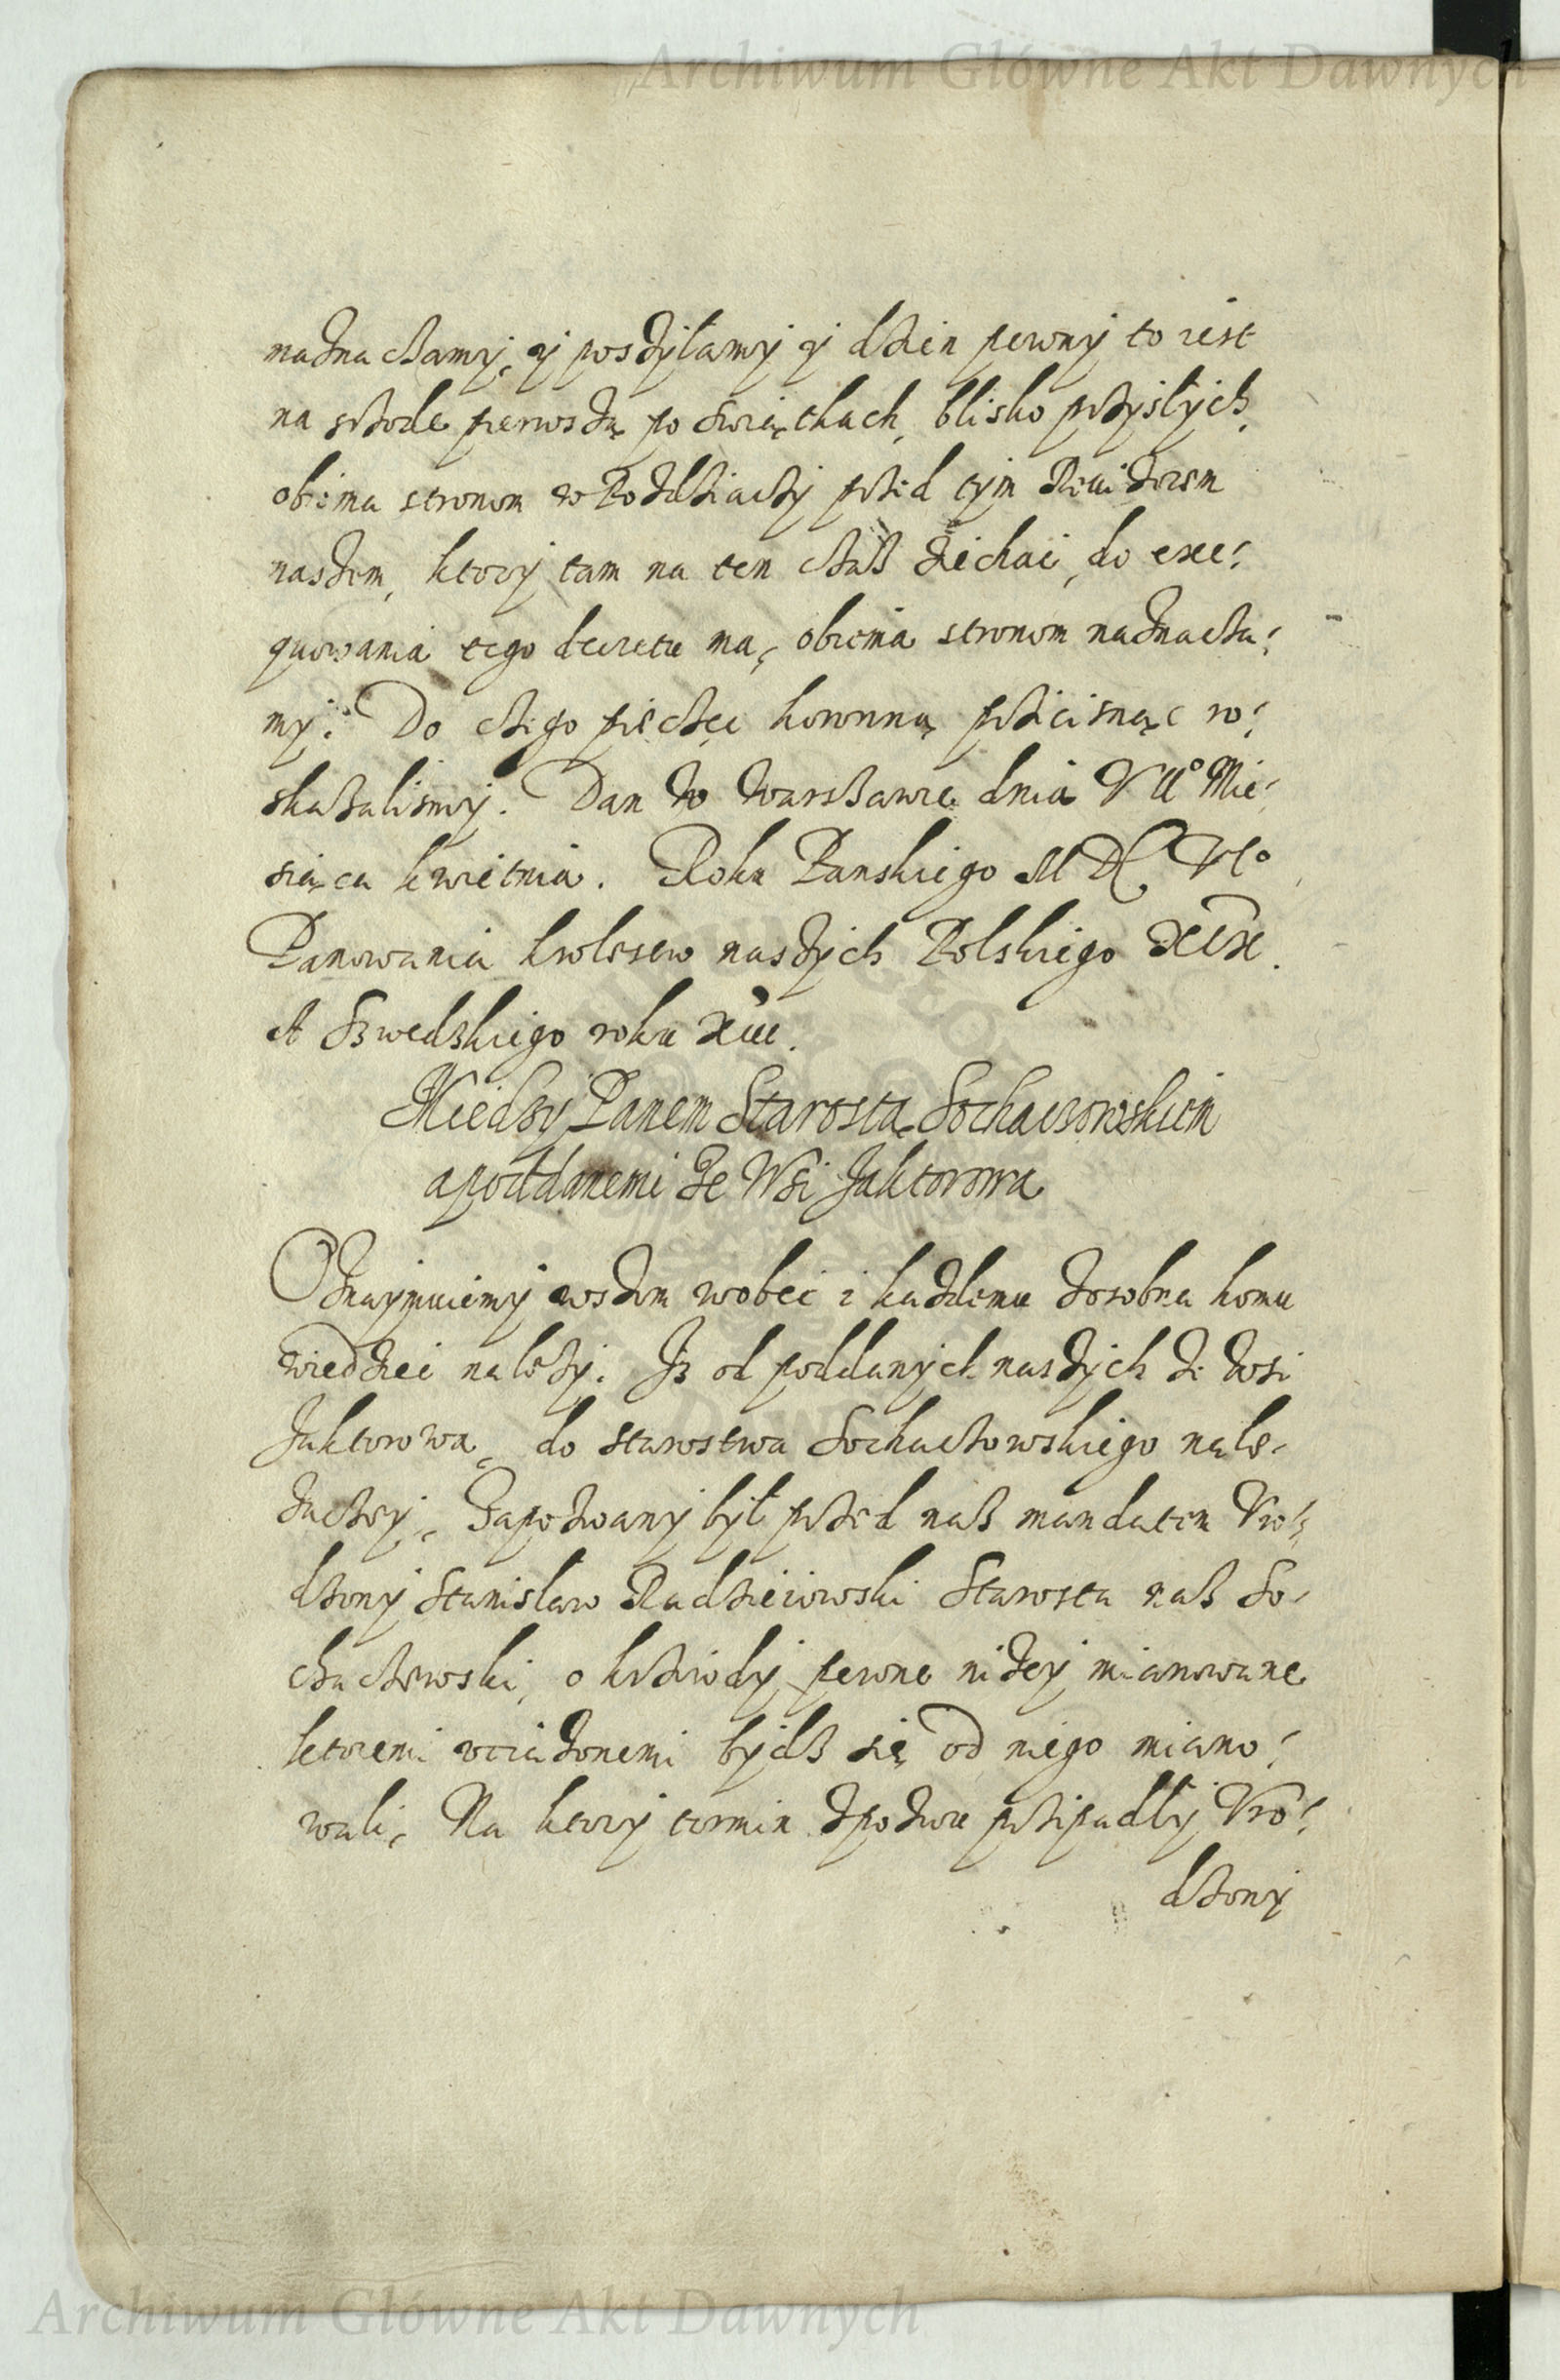 Archiwum Główne Akt Dawnych
naznaczamy, y posżyłamy y dzien pewny to iest
na srzode pierwszą po swiątkach, blisko przyszłych,
obiema stronom w Łodzi przed tym Reuizorem
naszem, ktory tam na ten czas ziechać, do exe:
quowania tego decretu ma, obiema stronom naznacza:
my. Do czego pieczęć koronną przicisnąć ro:
skazalismy. Dan w Warszawie dnia VII° Mie:
siąca kwietnia. Roku Panskiego MDCVI°
Panowania krolestw naszych Polskiego XIX.
A Szwedskiego roku XIII.
Miedzy Panem Starostą Sochaczowskiem
a poddanemi Ze Wsi Jaktorowa
Oznaymuiemy wszem wobec i każdemu zosobna komu
wiedzieć należy. Iz od poddanych naszych ze wsi
Jaktorowa, do starostwa Sochaczowskiego nale-
żączey, Zapozwany był przed nas mandatem Vro:
dzony Stanisław Radzieiowski Starosta nasz So-
chaczewski, o krziwdy pewne niżey mianowane
ktoremi vciążonemi bydz się od niego miano:
wali, Na ktory termin z pozwu przipadły Vro:
dzony
Archiwum Główne Akt Dawnych